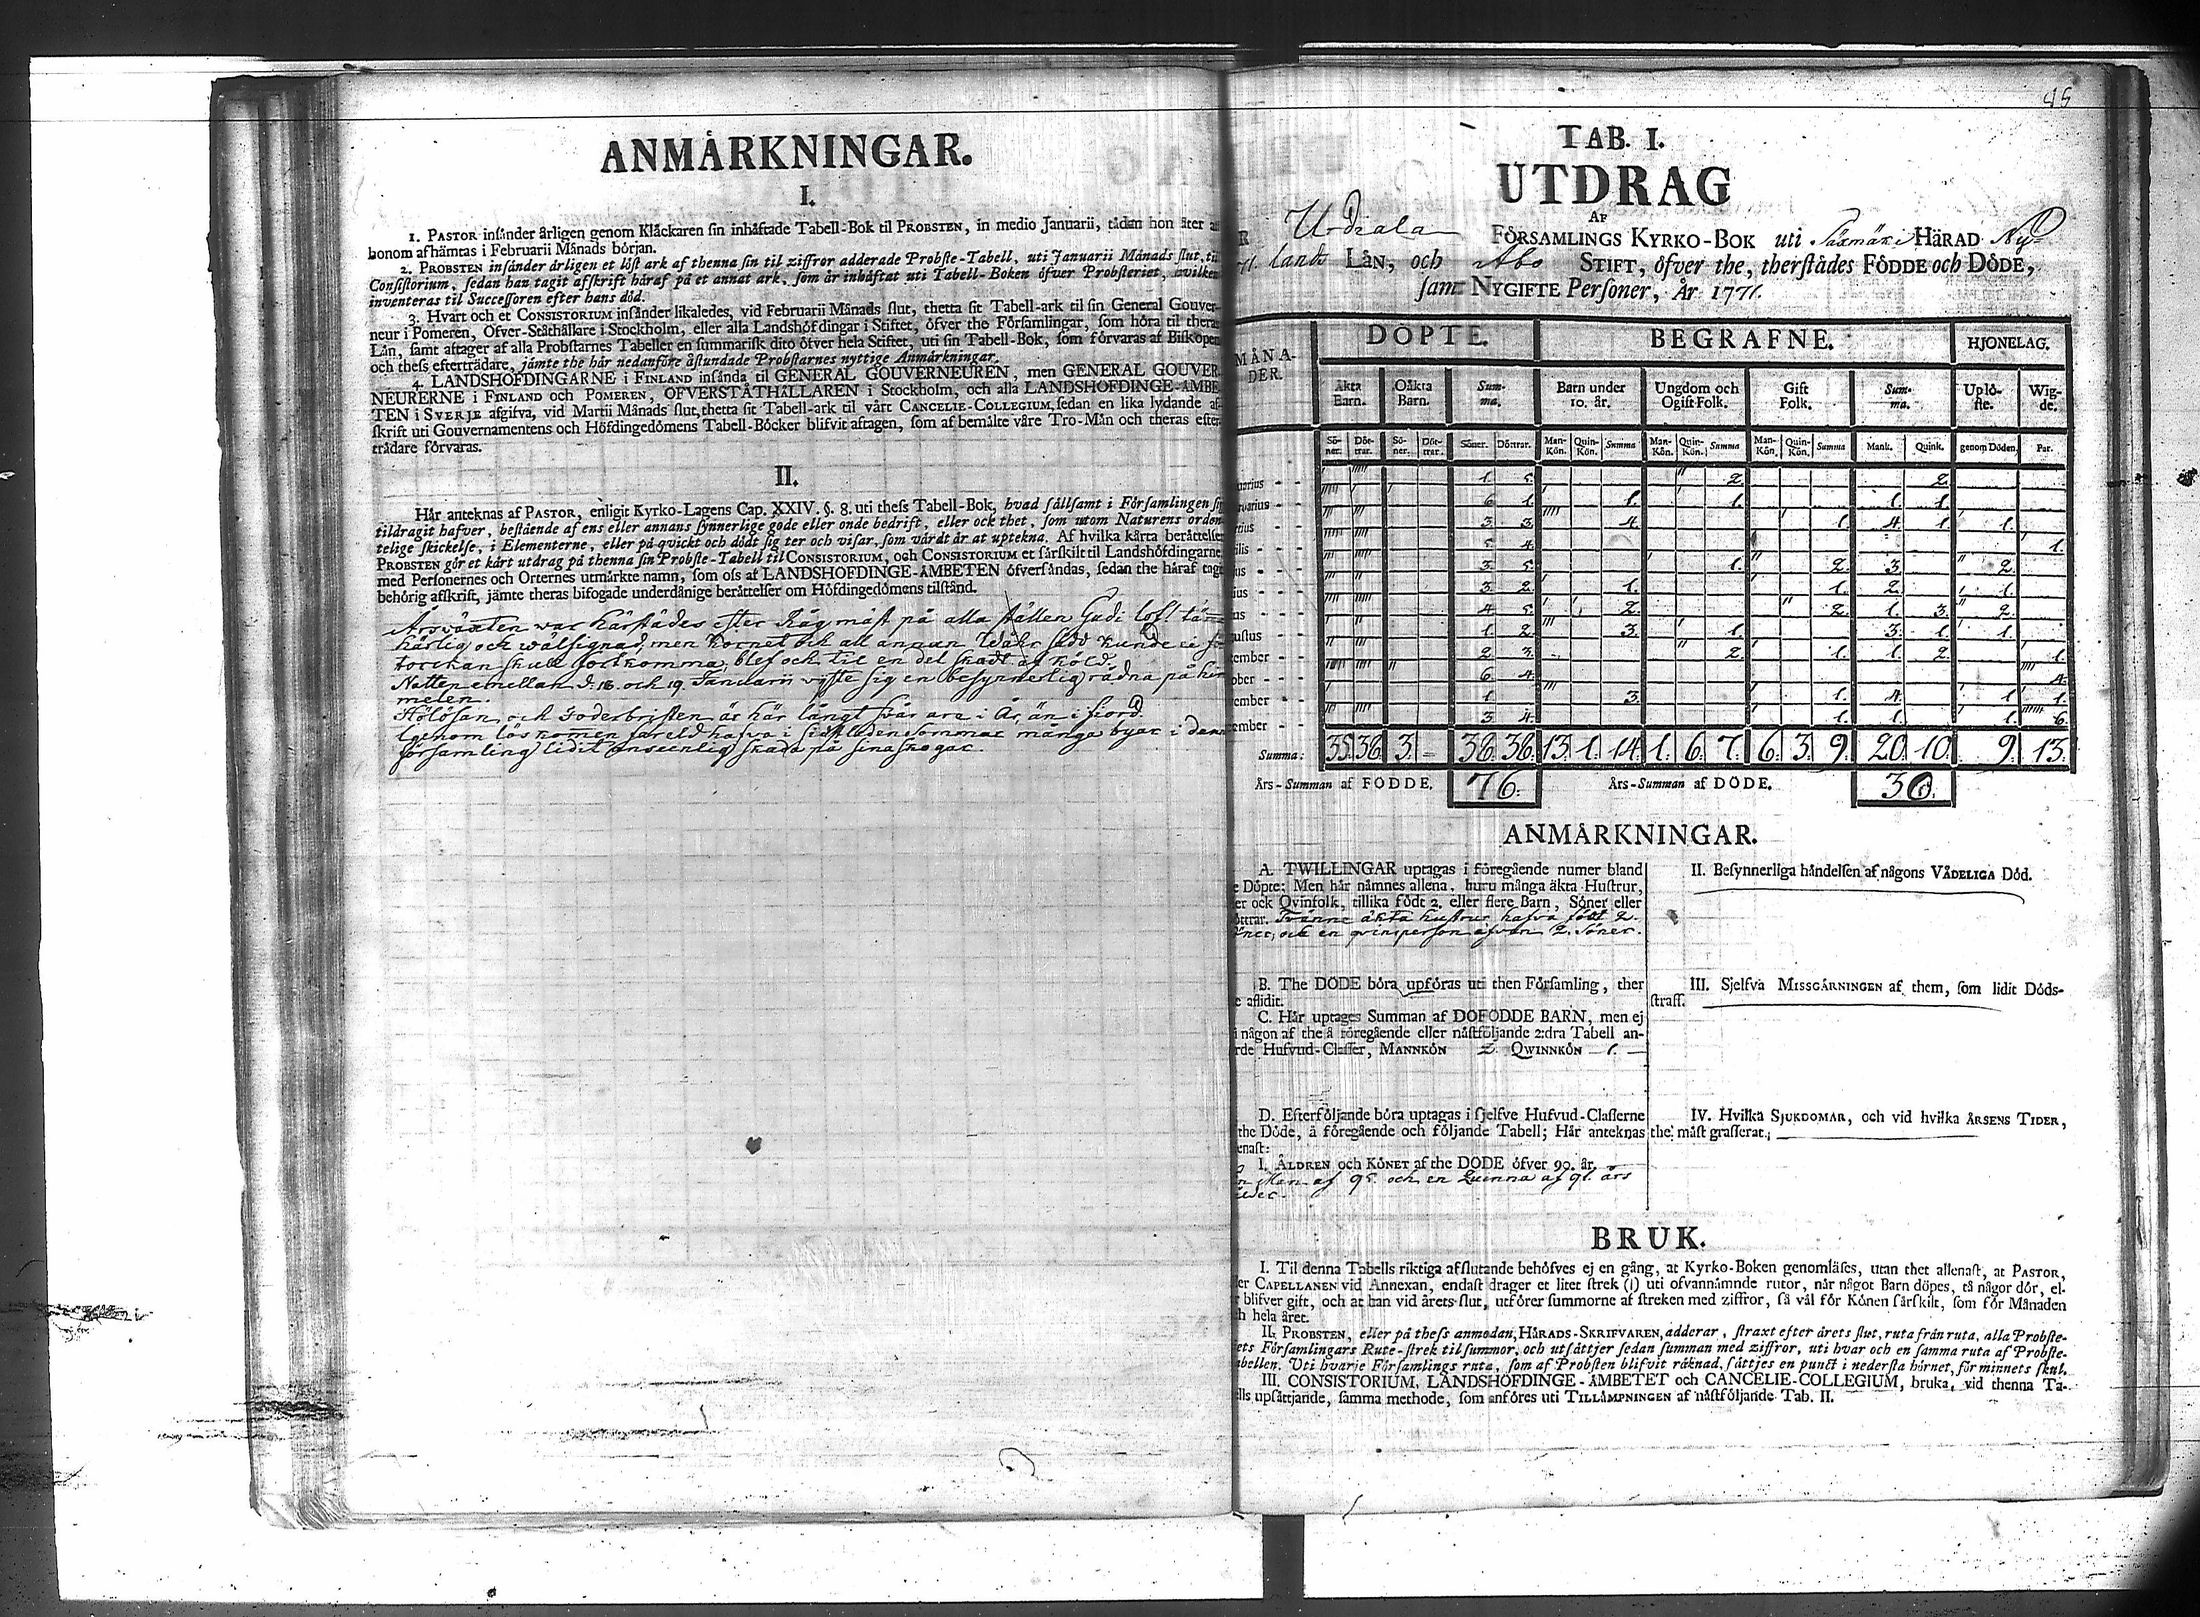 ANMÄRKNINGAR.
I.
1. PASTOR insänder årligen genom Klåckaren sin inhäftade Tabell-Bok til PROBSTEN, in medio Januarii, tådan hon åter
honom afhämtas i Februarii Månads början.
2. PROBSTEN insänder årligen et löst ark af thenna sin til ziffror adderade Probste-Tabell, uti Januarii Månads slut, til
Consistorium, sedan han tagit afskrift häraf på et annat ark, som är inhäftat uti Tabell-Boken öfver Probsteriet, hvilken
inventeras til Successoren efter hans död.
3. Hvart och et CONSISTORIUM insänder likaledes, vid Februarii Månads slut, thetta sit Tabell-ark til sin General Gouver-
neur i Pomeren, Öfver-Ståthållare i Stockholm, eller alla Landshöfdingar i Stiftet, öfver the Församlingar, som höra til theras
Län, samt aftager af alla Probstarnes Tabeller en summarisk dito öfver hela Stiftet, uti sin Tabell-Bok, som förvaras af Biskopen
och thess efterträdare, jämte the här nedanföre åstundade Probstarnes nyttige Anmärkningar.
4. LANDSHÖFDINGARNE i FINLAND insända til GENERAL GOUVERNEUREN, men GENERAL GOUVER-
NEURERNE i FINLAND och POMEREN, ÖFVERSTÅTHÅLLAREN i Stockholm, och alla LANDSHÖFDINGE-ÄMBE-
TEN i SVERJE afgifva, vid Martii Månads slut, thetta sit Tabell-ark til vårt CANCELIE-COLLEGIUM, sedan en lika lydande af-
skrift uti Gouvernamentens och Höfdingedömens Tabell-Böcker blifvit aftagen, som af bemälte våre Tro-Män och theras efter
trädare förvaras.
II.
Här anteknas af PASTOR, enligit Kyrko-Lagens Cap. XXIV. §. 8. uti thess Tabell-Bok, hvad sällsamt i Församlingen sig
tildragit hafver, bestående af ens eller annans synnerlige gode eller onde bedrift, eller ock thet, som utom Naturens orden-
telige skickelse, i Elementerne, eller på qvickt och dödt sig ter och visar, som värdt är at uptekna. Af hvilka kårta berättelser
PROBSTEN gör et kårt utdrag på thenna sin Probste-Tabell til CONSISTORIUM, och CONSISTORIUM et särskilt til Landshöfdingarne
med Personernes och Orternes utmärkte namn, som oss af LANDSHÖFDINGE-ÄMBETEN öfversändas, sedan the häraf tagit
behörig afskrift, jämte theras bifogade underdånige berättelser om Höfdingedömens tilstånd.
Årsväxten var härstädes efter Råg mäst på alla ställen Gudi lof! täm-
härlig och wälsignad, men kornet ock all annan Wåhr säd kunde ei för
torckan skull fortkomma, blef och til en del skadt af köld.
Natten emellan d. 18. och 19. Januarii viste sig en besynnerlig rådna på him
melen.
Hölösan och Foderbristen är här långt svårare i År än i fiord.
Igenom löskomen fareld hafva i sidstledne sommar många byar i denna
församling lidit ansenlig skada på sina skogar.
45
TAB. I.
UTDRAG
AF
Urdiala FÖRSAMLINGS KYRKO-BOK uti Saxmäki HÄRAD Ny-
lands LÄN, och Åbo STIFT, öfver the, therstädes FÖDDE och DÖDE,
samt NYGIFTE Personer, År 1771.
MÅNA-DER. DÖPTE. BEGRAFNE. HJONELAG.
Äkta Barn. Oäkta Barn. Summa. Barn under 10. år. Ungdom och Ogift Folk. Gift Folk. Summa. Uplöste. Wigde.
Söner. Döttrar. Söner. Döttrar. Söner. Döttrar. Mankön. Quinkön. Summa Mankön. Quinkön. Summa Mankön. Quinkön. Summa Mank. Quink. genom Döden. Par.
uarius - - 1. 5. 2. 2.
ruarius - - 6. 1. 1. 1. 1. 1.
rtius - - 3. 3. 4. 1. 4. 1. 1.
ilis - - 5. 4. 1.
us - - 3. 5. 1. 2. 3. 2.
ius - - 3. 2. 1. 1. 2. 1.
us - - 4. 5. 2. 2. 1. 3. 2.
ustus - - 1. 2. 3. 1. 3. 1. 1.
ember - - 2. 3. 2. 1. 1. 2. 1.
ober - - 6. 4. 4.
ember - - 1. 3. 1. 4. 1. 1.
ember - - 3. 4. 1. 1. 1. 6.
Summa: 35. 38. 3. - 38. 38. 13. 1. 14. 1. 6. 7. 6. 3. 9. 20. 10. 9. 13.
Års-Summan af FÖDDE. 76. Års-Summan af DÖDE. 30.
ANMÄRKNINGAR.
A. TWILLINGAR uptagas i föregående numer bland
e Döpte: Men här nämnes allena, huru många äkta Hustrur,
er ock Qvinfolk, tillika födt 2. eller flere Barn, Söner eller
öttrar. Tvänne äkta hustrur hafva födt 2.
öner, ock en qvinsperson äfven 2. Söner.
B. The DÖDE böra upföras uti then Församling, ther
e aflidit.
C. Här uptages Summan af DÖFÖDDE BARN, men ej
i någon af the å föregående eller nästföljande 2:dra Tabell an-
rde Hufvud-Classer, MANNKÖN 2. QWINNKÖN - 1. -
D. Efterföljande böra uptagas i sjelfve Hufvud-Classerne
the Döde, å föregående och följande Tabell; Här anteknas
enast:
I. ÅLDREN och KÖNET af the DÖDE öfver 90. år.
n Man af 95. och en Quinna af 91. års
ålder.
II. Besynnerliga händelsen af någons VÅDELIGA Död.
III. Sjelfva MISSGÄRNINGEN af them, som lidit Döds-
straff.
IV. Hvilka SJUKDOMAR, och vid hvilka ÅRSENS TIDER,
the mäst grasserat.
BRUK.
I. Til denna Tabells riktiga afslutande behöfves ej en gång, at Kyrko-Boken genomläses, utan thet allenast, at PASTOR,
er CAPELLANEN vid Annexan, endast drager et litet strek (I) uti ofvannämnde rutor, når något Barn döpes, tå någor dör, el-
r blifver gift, och at han vid årets slut, utförer summorne af streken med ziffror, så väl för Könen särskilt, som för Månaden
h hela året.
II. PROBSTEN, eller på thess anmodan, HÄRADS-SKRIFVAREN, adderar, straxt efter årets slut, ruta från ruta, alla Probste-
ets Församlingars Rute-strek til summor, och utsättjer sedan summan med ziffror, uti hvar och en samma ruta af Probste-
abellen. Uti hvarje Församlings ruta, som af Probsten blifvit räknad, sättjes en punct i nedersta hörnet, för minnets skul.
III. CONSISTORIUM, LANDSHÖFDINGE-ÄMBETET och CANCELIE-COLLEGIUM, bruka, vid thenna Ta-
lls upsättjande, samma methode, som anföres uti TILLÄMPNINGEN af nästföljande Tab. II.